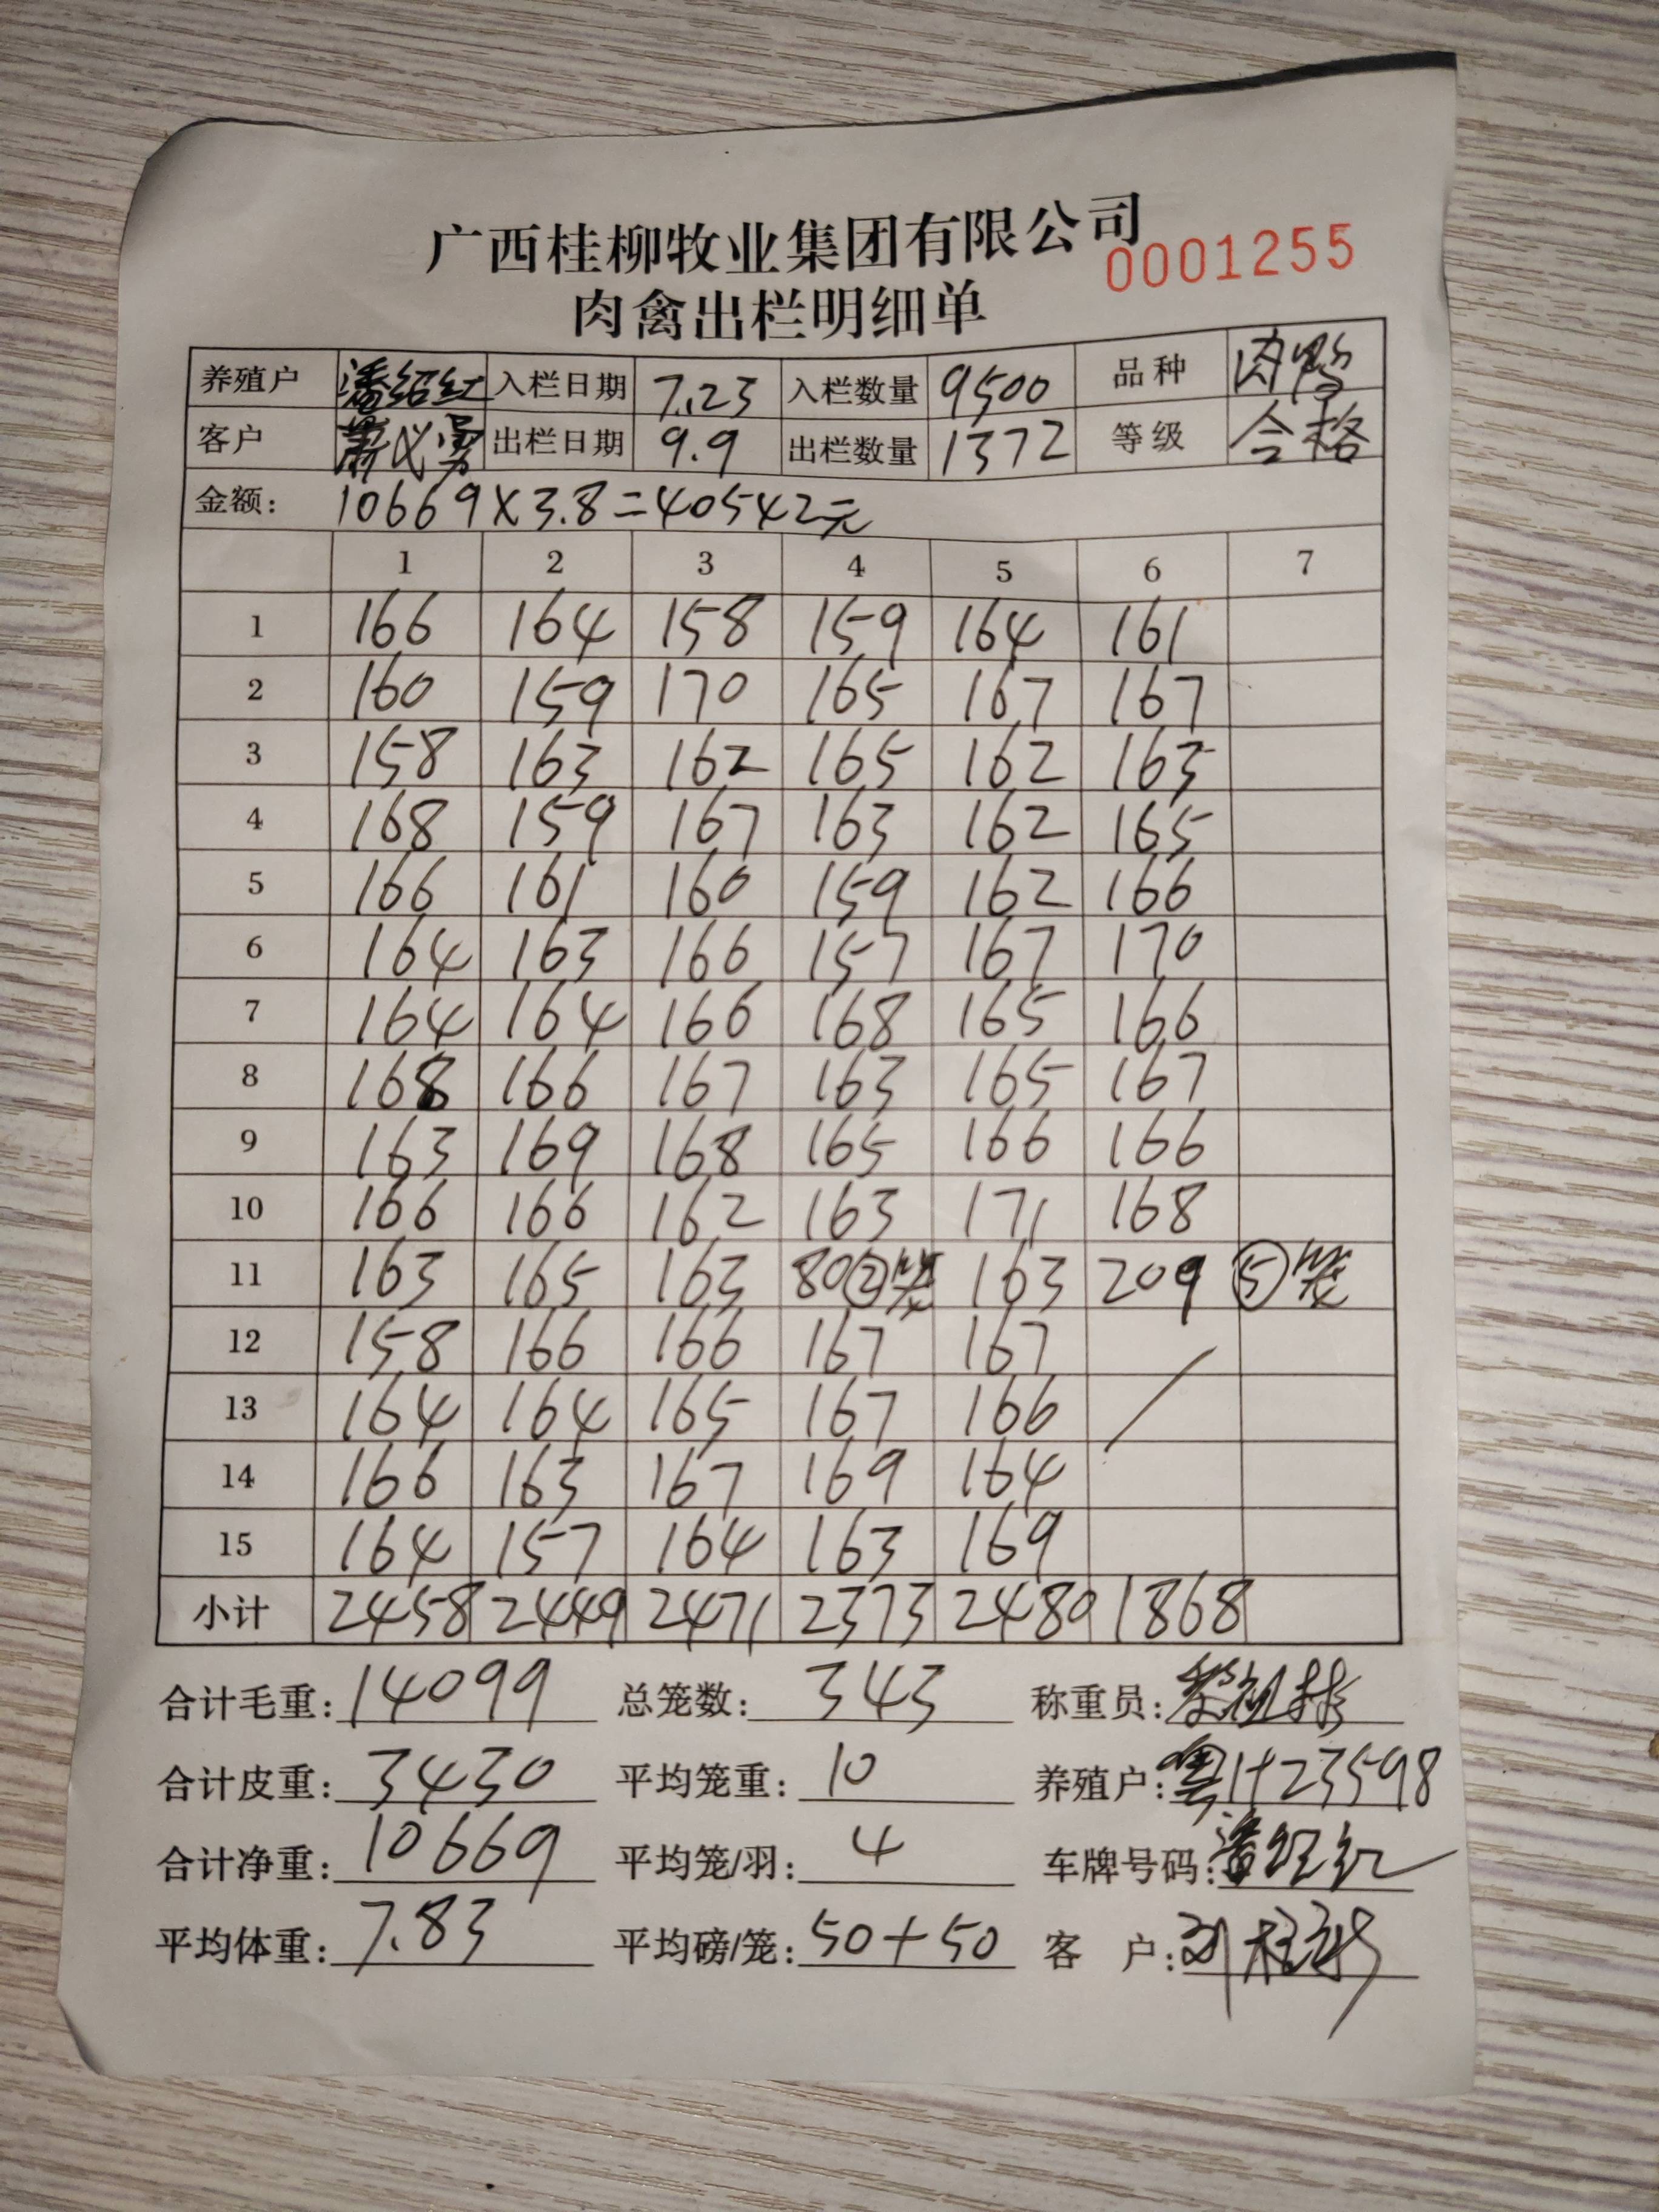 广西桂柳牧业集团有限公司
0001255
肉禽出栏明细单
养殖户 潘绍红 入栏日期 7.23 入栏数量 9500 品种 肉鸭
客户 萧必勇 出栏日期 9.9 出栏数量 1372 等级 合格
金额: 10669×3.8=40542元
1 2 3 4 5 6 7
1 166 164 158 159 164 161
2 160 159 170 165 167 167
3 158 163 162 165 162 163
4 168 159 167 163 162 165
5 166 161 160 159 162 166
6 164 163 166 157 167 170
7 164 164 166 168 165 166
8 168 166 167 163 165 167
9 163 169 168 165 166 166
10 166 166 162 163 171 168
11 163 165 163 80②笼 163 209 ⑤笼
12 158 166 166 167 167
13 164 164 165 167 166
14 166 163 167 169 164
15 164 157 164 163 169
小计 2458 2449 2471 2373 2480 1868
合计毛重: 14099 总笼数: 343 称重员:
合计皮重: 3430 平均笼重: 10 养殖户: 粤H23598
合计净重: 10669 平均笼/羽: 4 车牌号码: 潘绍红
平均体重: 7.83 平均磅/笼: 50+50 客 户: